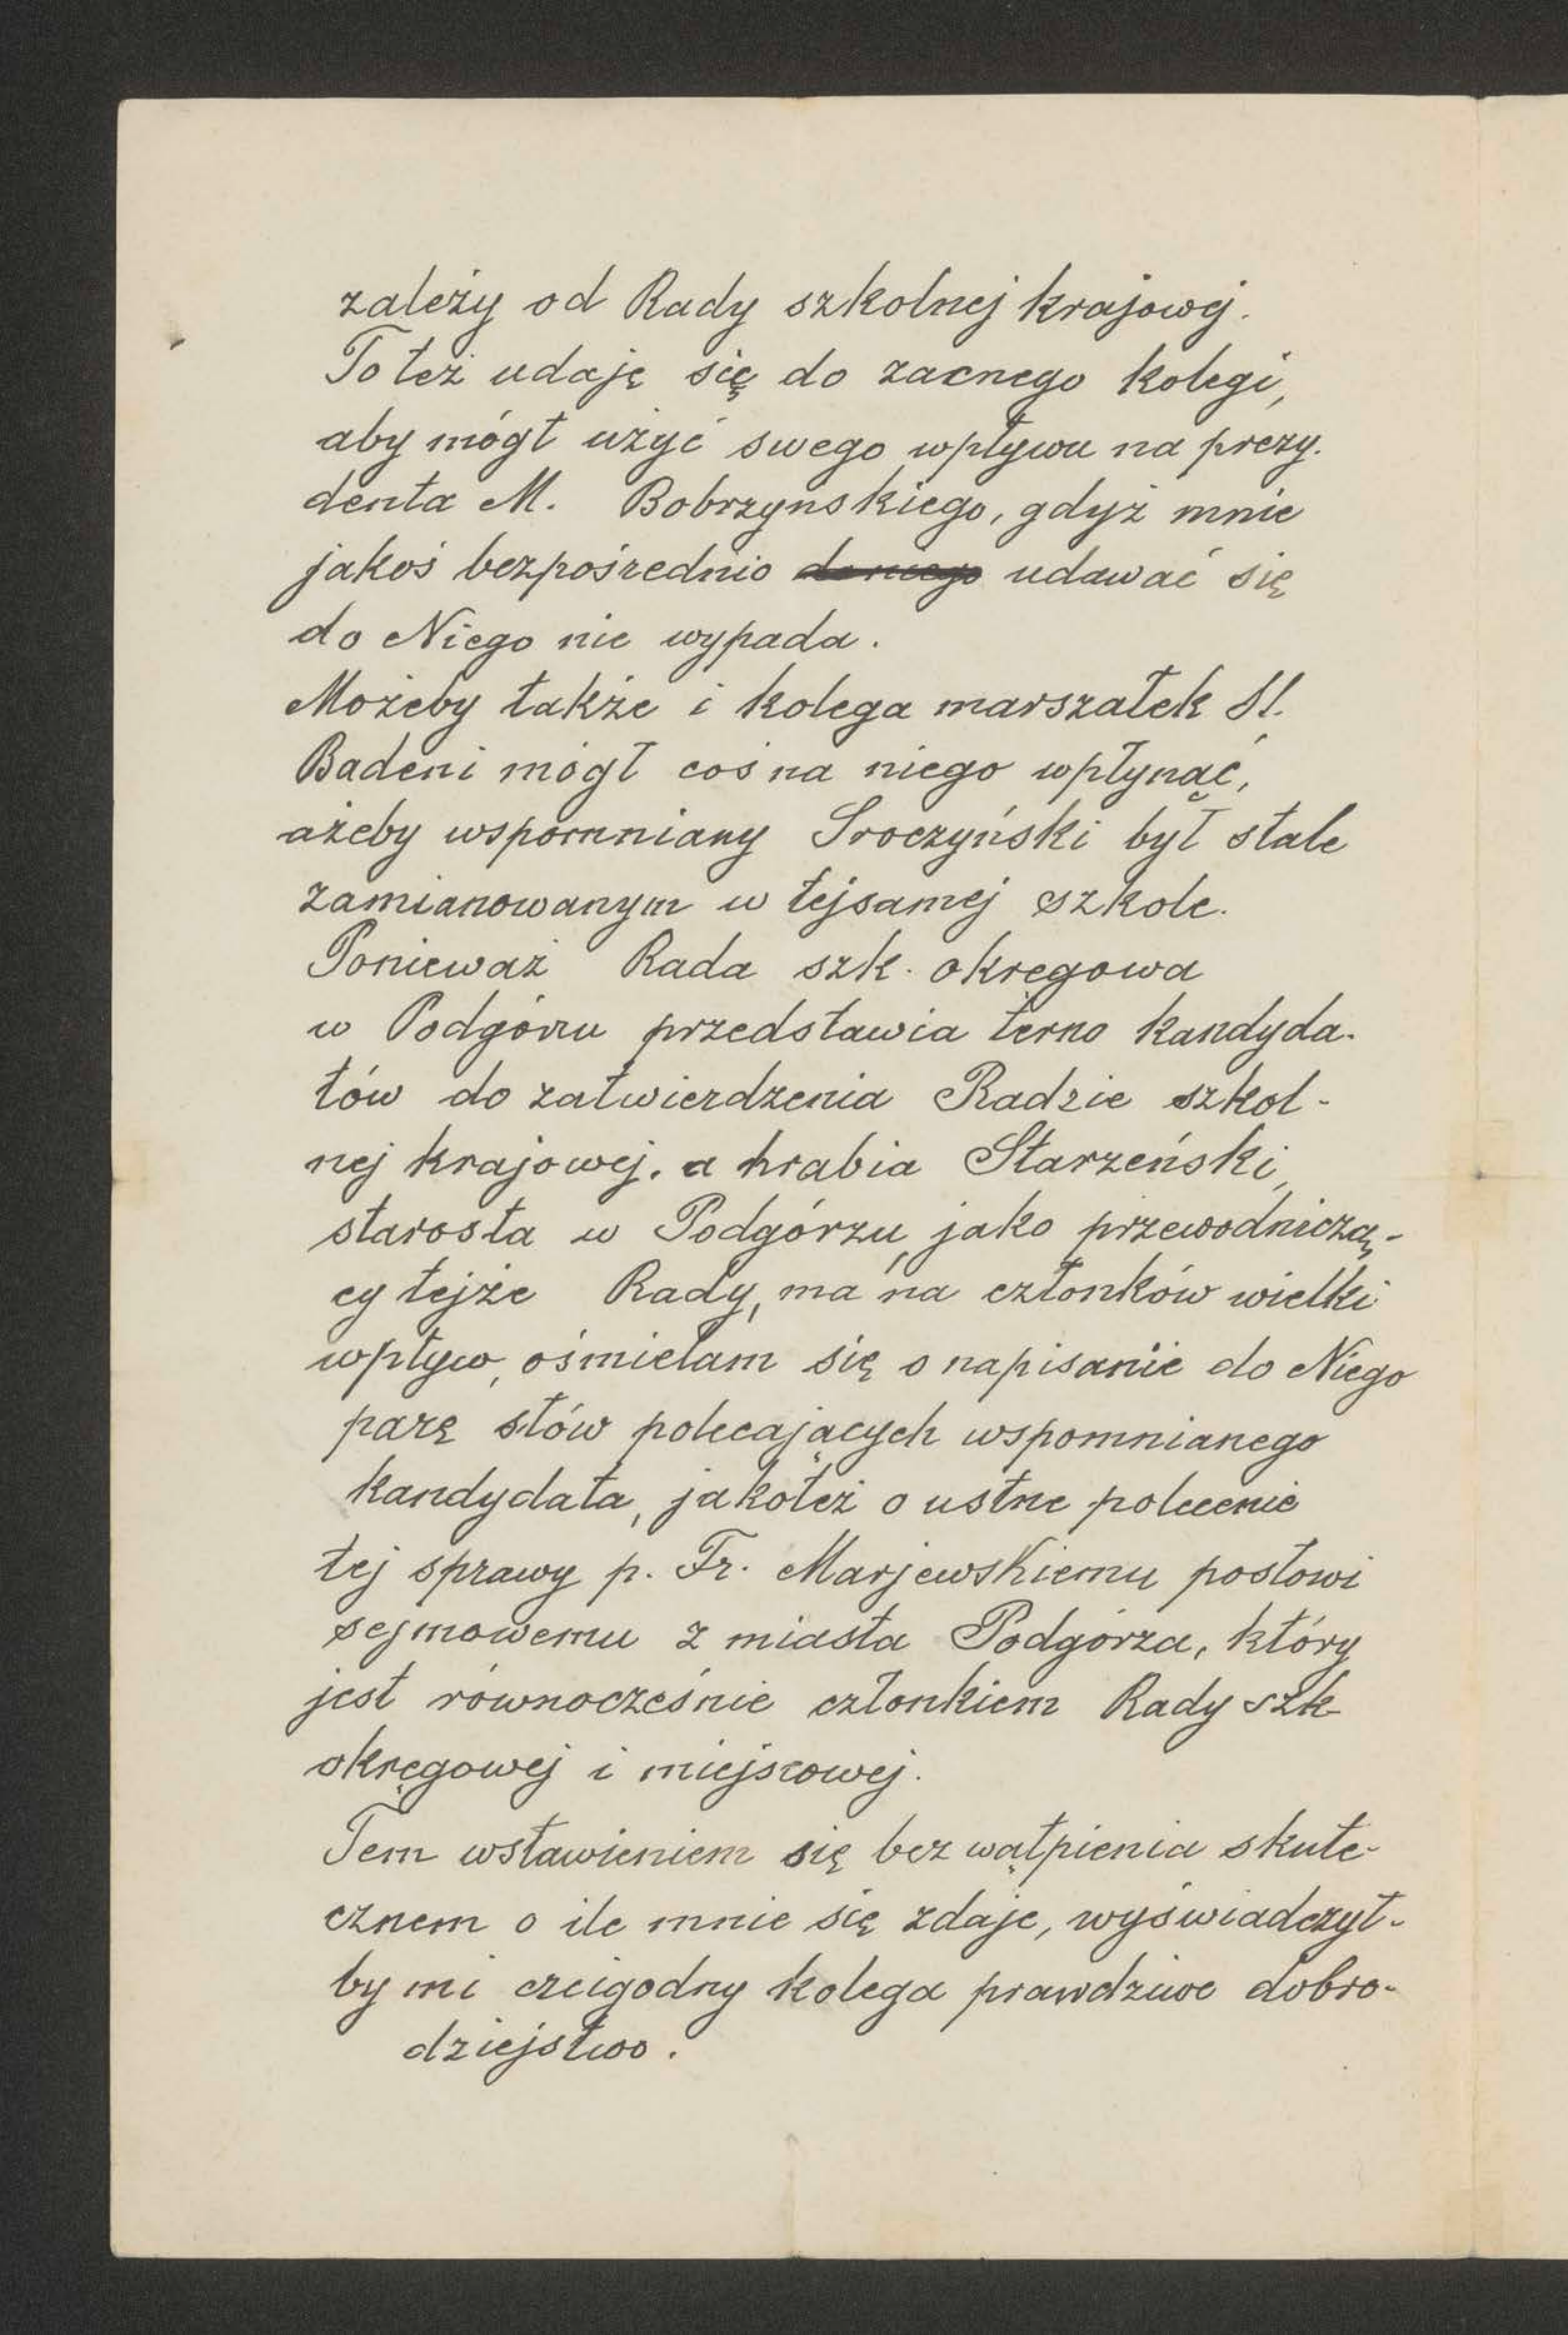 zależy od Rady szkolnej krajowej.
To też udaję się do zacnego kolegi,
aby mógł użyć swego wpływu na prezy-
denta M. Bobrzynskiego, gdyż mnie
jakoś bezpośrednio do niego udawać się
do Niego nie wypada.
Możeby także i kolega marszałek St.
Badeni mógł coś na niego wpłynąć,
ażeby wspomniany Sroczyński był stale
zamianowanym w tejsamej szkole.
Ponieważ Rada szk. okręgowa
w Podgórzu przedstawia terno kandyda-
tów do zatwierdzenia Radzie szkol-
nej krajowej, a hrabia Starzeński,
starosta w Podgórzu, jako przewodniczą-
cy tejże Rady, ma na członków wielki
wpływ, ośmielam się o napisanie do Niego
parę słów polecających wspomnianego
kandydata, jakoteż o ustne polecenie
tej sprawy p. Fr. Marjewskiemu posłowi
sejmowemu z miasta Podgórza, który
jest równocześnie członkiem Rady szk
okręgowej i miejscowej.
Tem wstawieniem się bez wątpienia skute-
cznem o ile mnie się zdaje, wyświadczył-
by mi czcigodny kolega prawdziwe dobro-
dziejstwo.